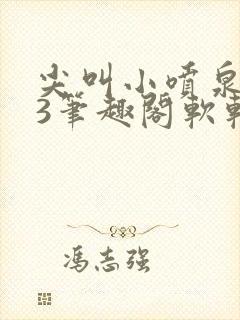 尖叫小喷泉
3笔趣阁软
冯志强